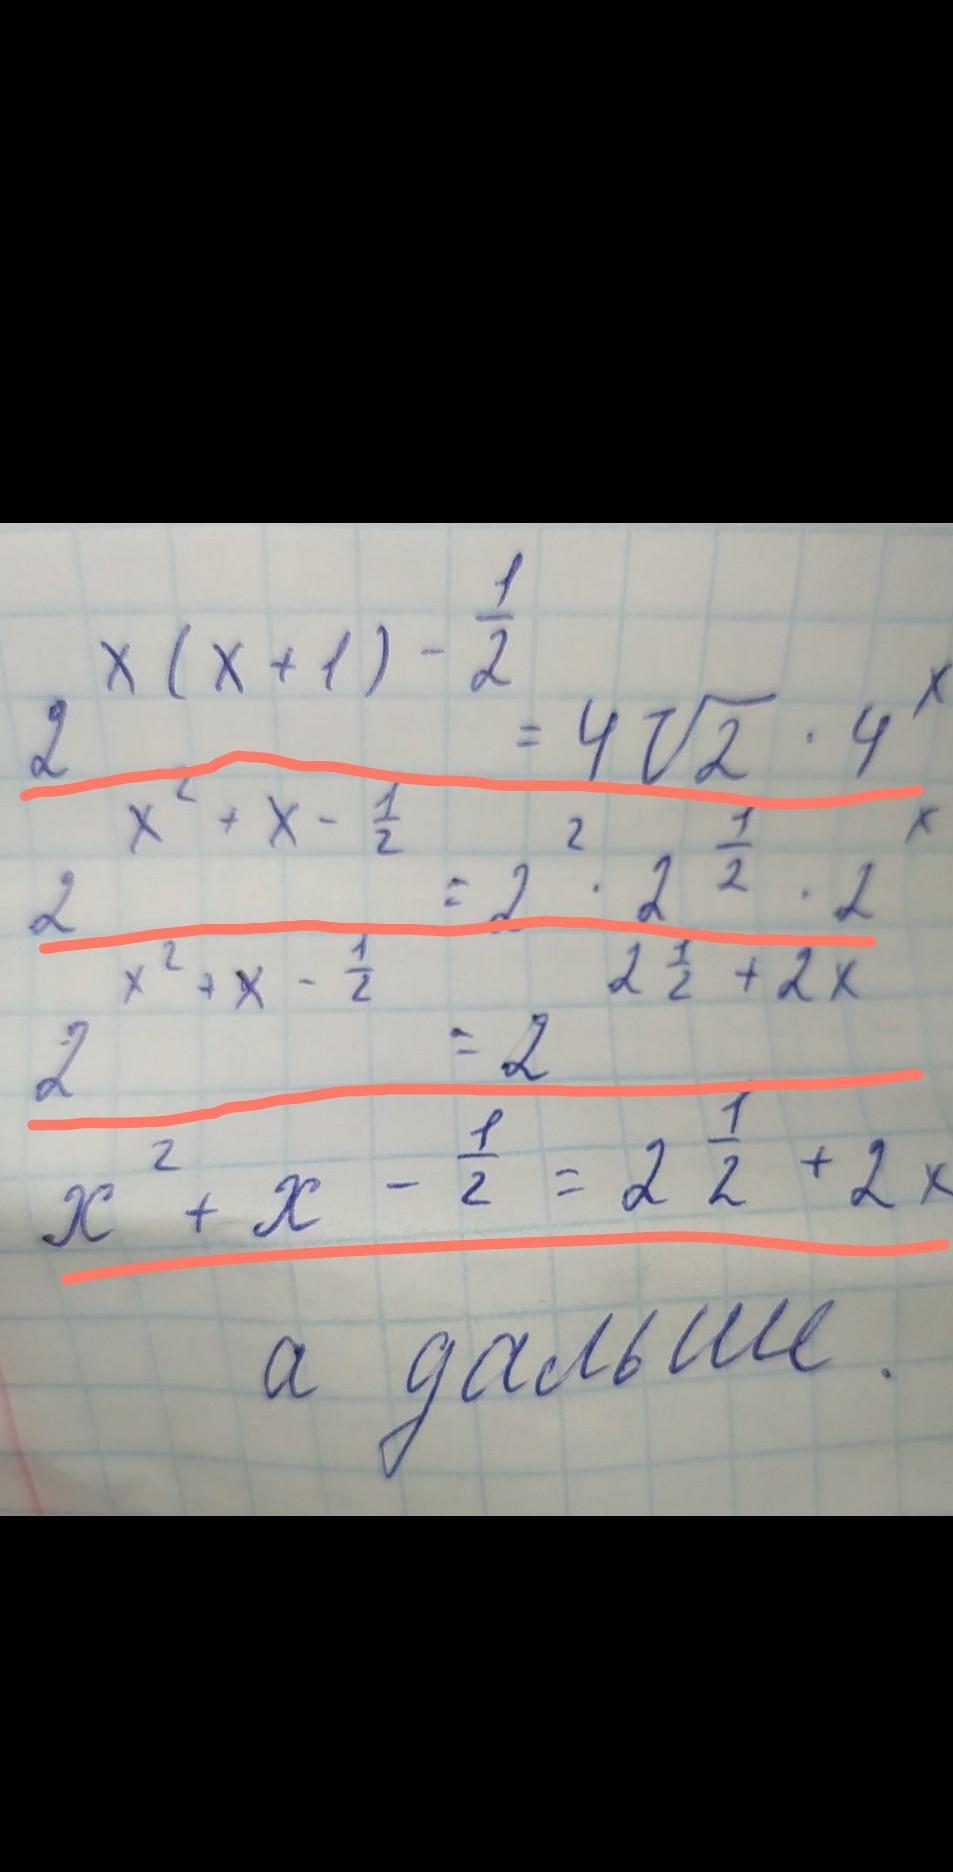 2^{x(x+1)-\frac{1}{2}} = 4\sqrt{2} \cdot 4^x
2^{x^2+x-\frac{1}{2}} = 2^2 \cdot 2^{\frac{1}{2}} \cdot 2^x
2^{x^2+x-\frac{1}{2}} = 2^{2\frac{1}{2}+2x}
x^2+x-\frac{1}{2} = 2\frac{1}{2}+2x
а дальше.